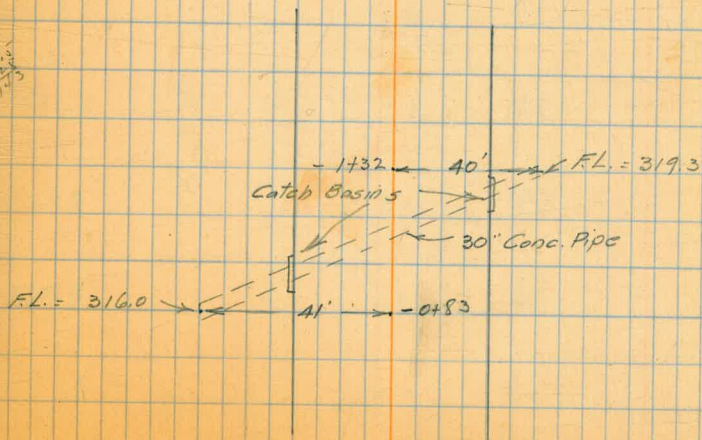 - 1+32 40' F.L. = 319.3
Catch Basins
30" Conc. Pipe
F.L. = 316.0 41' - 0+83